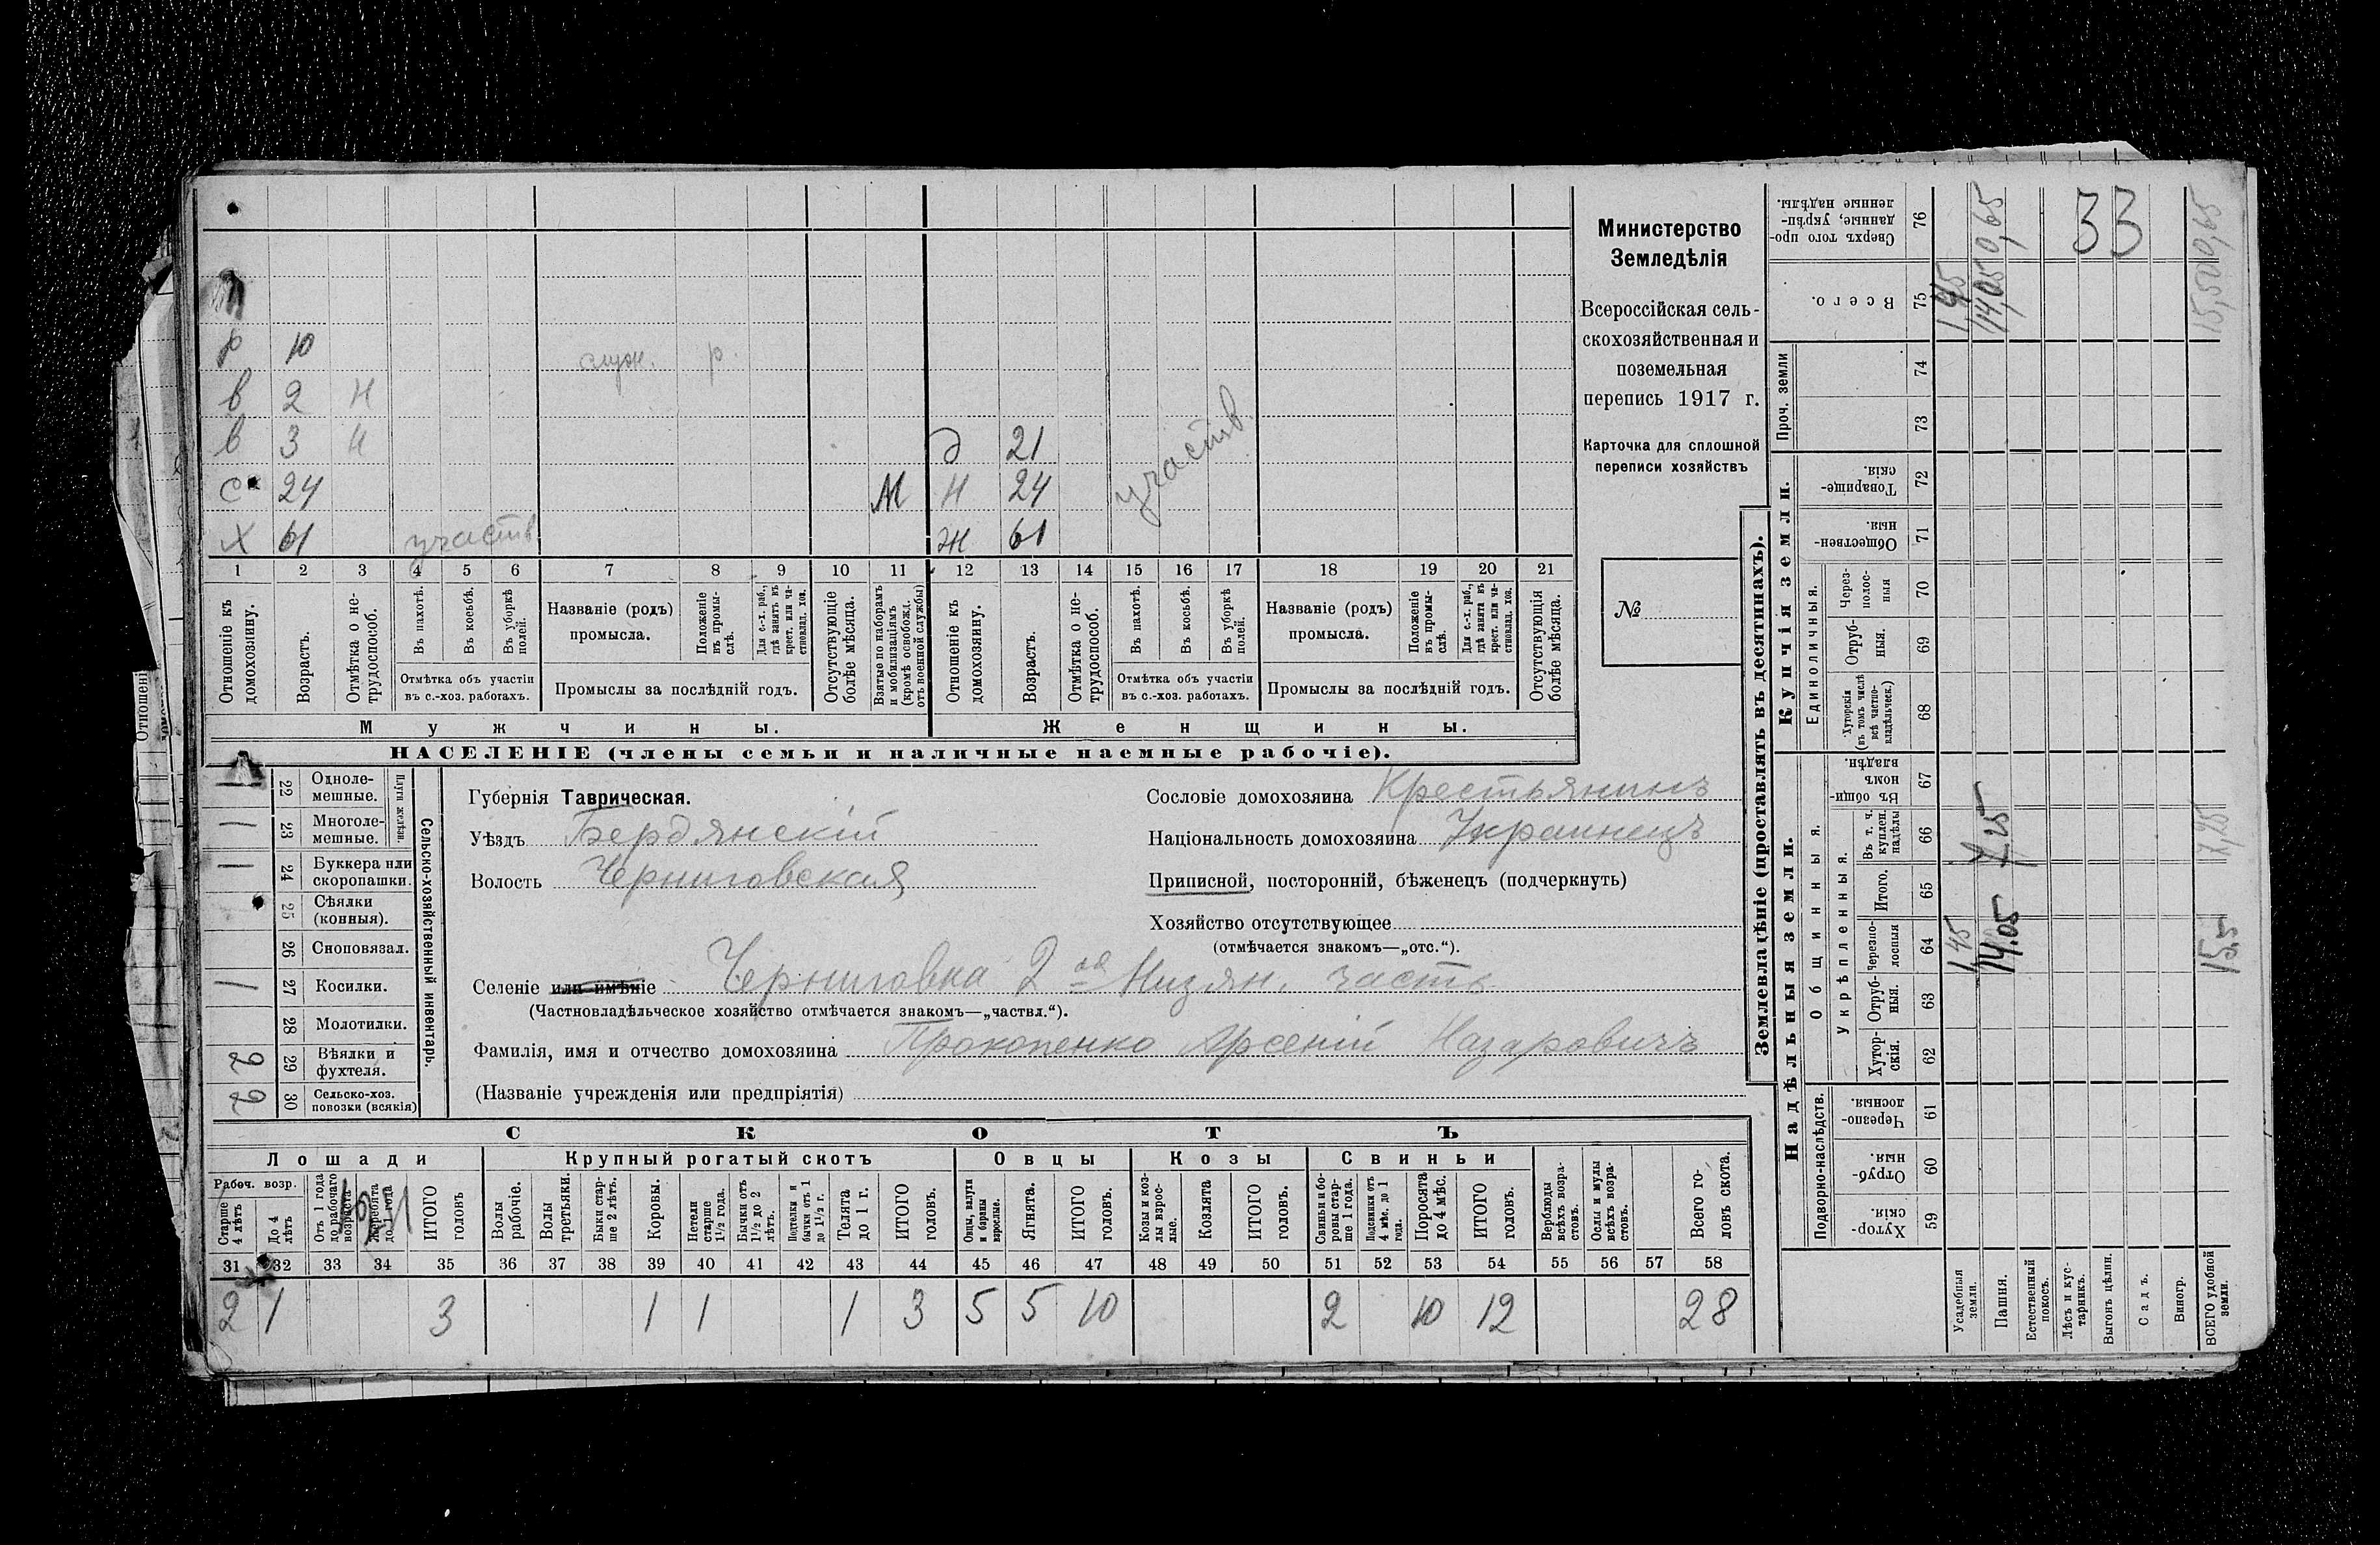 р 10 служ. р.
в 2 н
в 3 н д 21
с 24 М н 24 участв.
х 61 участв ж 61
1 2 3 4 5 6 7 8 9 10 11 12 13 14 15 16 17 18 19 20 21
Отношеніе къ домохозяину.
Возрастъ.
Отмѣтка о нетрудоспособ.
Въ пахотѣ.
Въ косьбѣ.
Въ уборкѣ полей.
Отмѣтка объ участіи въ с.-хоз. работахъ.
Названіе (родъ) промысла.
Положеніе въ промыслѣ.
Для с.-х. раб., гдѣ занятъ въ крест. или частновлад. хоз.
Промыслы за послѣдній годъ.
Отсутствующіе болѣе мѣсяца.
Взятые по наборамъ и мобилизаціямъ (кромѣ освобожд. отъ военной службы)
Отношеніе къ домохозяину.
Возрастъ.
Отмѣтка о нетрудоспособ.
Въ пахотѣ.
Въ косьбѣ.
Въ уборкѣ полей.
Отмѣтка объ участіи въ с.-хоз. работахъ.
Названіе (родъ) промысла.
Положеніе въ промыслѣ.
Для с.-х. раб., гдѣ занята въ крест. или частновлад. хоз.
Промыслы за послѣдній годъ.
Отсутствующія болѣе мѣсяца.
Мужчины.
Женщины.
НАСЕЛЕНІЕ (члены семьи и наличные наемные рабочіе).
Министерство
Земледѣлія
Всероссійская сель-
скохозяйственная и
поземельная
перепись 1917 г.
Карточка для сплошной
переписи хозяйствъ
№
22 Одноле-
мешные.
1 23 Многоле-
мешные.
Плуги желѣзн.
1 24 Буккера или
скоропашки.
25 Сѣялки
(конныя).
26 Сноповязал.
1 27 Косилки.
28 Молотилки.
2 29 Вѣялки и
фухтеля.
2 30 Сельско-хоз.
повозки (всякія)
Сельско-хозяйственный инвентарь.
Губернія Таврическая.
Уѣздъ Бердянскій
Волость Черниговская
Сословіе домохозяина Крестьянинъ
Національность домохозяина Украинецъ
Приписной, посторонній, бѣженецъ (подчеркнуть)
Хозяйство отсутствующее
(отмѣчается знакомъ—„отс.“).
Селеніе или имѣніе Черниговка 2ая Низян. часть
(Частновладѣльческое хозяйство отмѣчается знакомъ—„частвл.“).
Фамилія, имя и отчество домохозяина Прокопенко Арсеній Назаровичъ
(Названіе учрежденія или предпріятія)
СКОТЪ
Лошади
Крупный рогатый скотъ
Овцы
Козы
Свиньи
Рабоч. возр.
Старше 4 лѣтъ
До 4 лѣтъ
Отъ 1 года до рабочаго возраста
Жеребята до 1 года
ИТОГО головъ
Волы рабочіе.
Волы третьяки.
Быки старше 2 лѣтъ.
Коровы.
Нетели старше 1½ года.
Бычки отъ 1½ до 2 лѣтъ.
Подтелки и бычки отъ 1 до 1½ г.
Телята до 1 г.
ИТОГО головъ.
Овцы, валухи и бараны взрослые.
Ягнята.
ИТОГО головъ.
Козы и козлы взрослые.
Козлята
ИТОГО головъ.
Свиньи и боровы старше 1 года.
Подсвинки отъ 4 мѣс. до 1 года.
Поросята до 4 мѣс.
ИТОГО головъ.
Верблюды всѣхъ возрастовъ.
Ослы и мулы всѣхъ возрастовъ.
Всего головъ скота.
31 32 33 34 35 36 37 38 39 40 41 42 43 44 45 46 47 48 49 50 51 52 53 54 55 56 57 58
2 1 3 1 1 1 3 5 5 10 2 10 12 28
Землевладѣніе (проставлять въ десятинахъ).
Надѣльныя земли.
Купчія земли.
Проч. земли
Подворно-наслѣдств.
Общинныя.
Укрѣпленныя.
Единоличныя.
Сверхъ того проданные, укрѣпленные надѣлы. 76
Всего. 75
74
73
Товарищескія. 72
Общественныя. 71
Черезполосныя 70
Отрубныя. 69
Хуторскія (въ томъ числѣ всѣ частновладѣльческ.) 68
Въ общинномъ владѣн. 67
Въ т. ч. куплен. надѣлы 66
Итого. 65
Черезполосныя 64
Отрубныя. 63
Хуторскія. 62
Черезполосныя. 61
Отрубныя. 60
Хуторскія. 59
Усадебныя земли. 1,45 1,45
Пашня. 14.05 7,25 14,05 0,65
Естественный покосъ.
Лѣсъ и кустарникъ.
Выгонъ цѣлин.
Садъ.
Виногр.
ВСЕГО удобной земли. 15,5 7,25 15,50 0,65
33